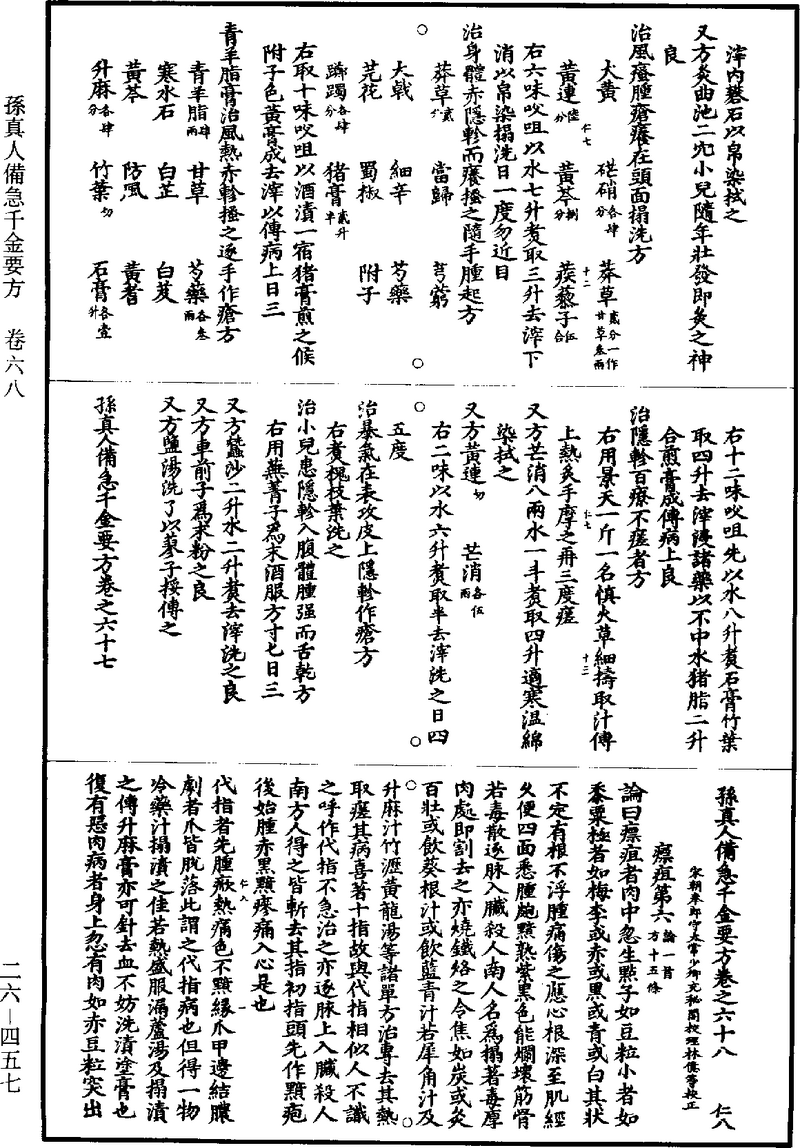 孫真人備急千金要方　卷六八
二六—四五七
滓內礬石以帛染拭之
又方灸曲池二穴小兒隨年壯發即灸之神
良
治風瘙腫瘡癢在頭面搨洗方
大黃　硭硝各肆分　莽草貳分一作甘草叁兩
仁七　十二
黃連陸分　黃芩捌分　蒺藜子伍合
右六味㕮咀以水七升煑取三升去滓下
消以帛染搨洗日一度勿近目
治身體赤隱軫而癢搔之隨手腫起方
莽草貳分　當歸　芎藭
大戟　細辛　芍藥
芫花　蜀椒　附子
躑躅各肆分　猪膏貳升半
右取十味㕮咀以酒漬一宿猪膏煎之候
附子色黃膏成去滓以傅病上日三
青羊脂膏治風熱赤軫搔之逐手作瘡方
青羊脂肆兩　甘草　芍藥各叁兩
寒水石　白芷　白芨
黃芩　防風　黃耆
升麻各肆分　竹葉　石膏各壹升
右十二味㕮咀先以水八升煑石膏竹葉
取四升去滓浸諸藥以不中水猪脂二升
合煎膏成傅病上良
治隱軫百療不瘥者方
右用景天一斤一名慎火草細擣取汁傅
仁七　十三
上熱灸手摩之再三度瘥
又方芒消八兩水一斗煑取四升適寒溫綿
染拭之
又方黃連　芒消各伍兩
右二味以水六升煑取半去滓洗之日四
五度
治暴氣在表攻皮上隱軫作瘡方
右煑槐枝葉洗之
治小兒患隱軫入腹體腫强而舌乾方
右用蕪菁子爲末酒服方寸匕日三
又方蠶沙二升水二升煑去滓洗之良
又方車前子爲末粉之良
又方鹽湯洗了以蓼子挼傅之
孫真人備急千金要方卷之六十七
孫真人備急千金要方卷之六十八　仁八
宋朝奉郎守太常少卿充秘閣校理林億等校正
瘭疽第六論一首方十五條
論曰瘭疽者肉中忽生點子如豆粒小者如
黍粟極者如梅李或赤或黑或青或白其狀
不定有根不浮腫痛傷之應心根深至肌經
久便四面悉腫皰黯熟紫黑色能爛壞筋骨
若毒散逐脉入臟殺人南人名爲搨著毒厚
肉處即割去之亦燒鐵烙之令焦如炭或灸
百壯或飲葵根汁或飲藍青汁若犀角汁及
升麻汁竹瀝黃龍湯等諸單方治專去其熱
取瘥其病喜著十指故與代指相似人不識
之呼作代指不急治之亦逐脉上入臟殺人
南方人得之皆斬去其指初指頭先作黯疱
後始腫赤黑黯瘮痛入心是也
仁八　一
代指者先腫㷉熱痛色不黯緣爪甲邊結膿
劇者爪皆脫落此謂之代指病也但得一物
冷藥汁搨漬之佳若熱盛服漏蘆湯及搨漬
之傅升麻膏亦可針去血不妨洗漬塗膏也
復有惡肉病者身上忽有肉如赤豆粒突出